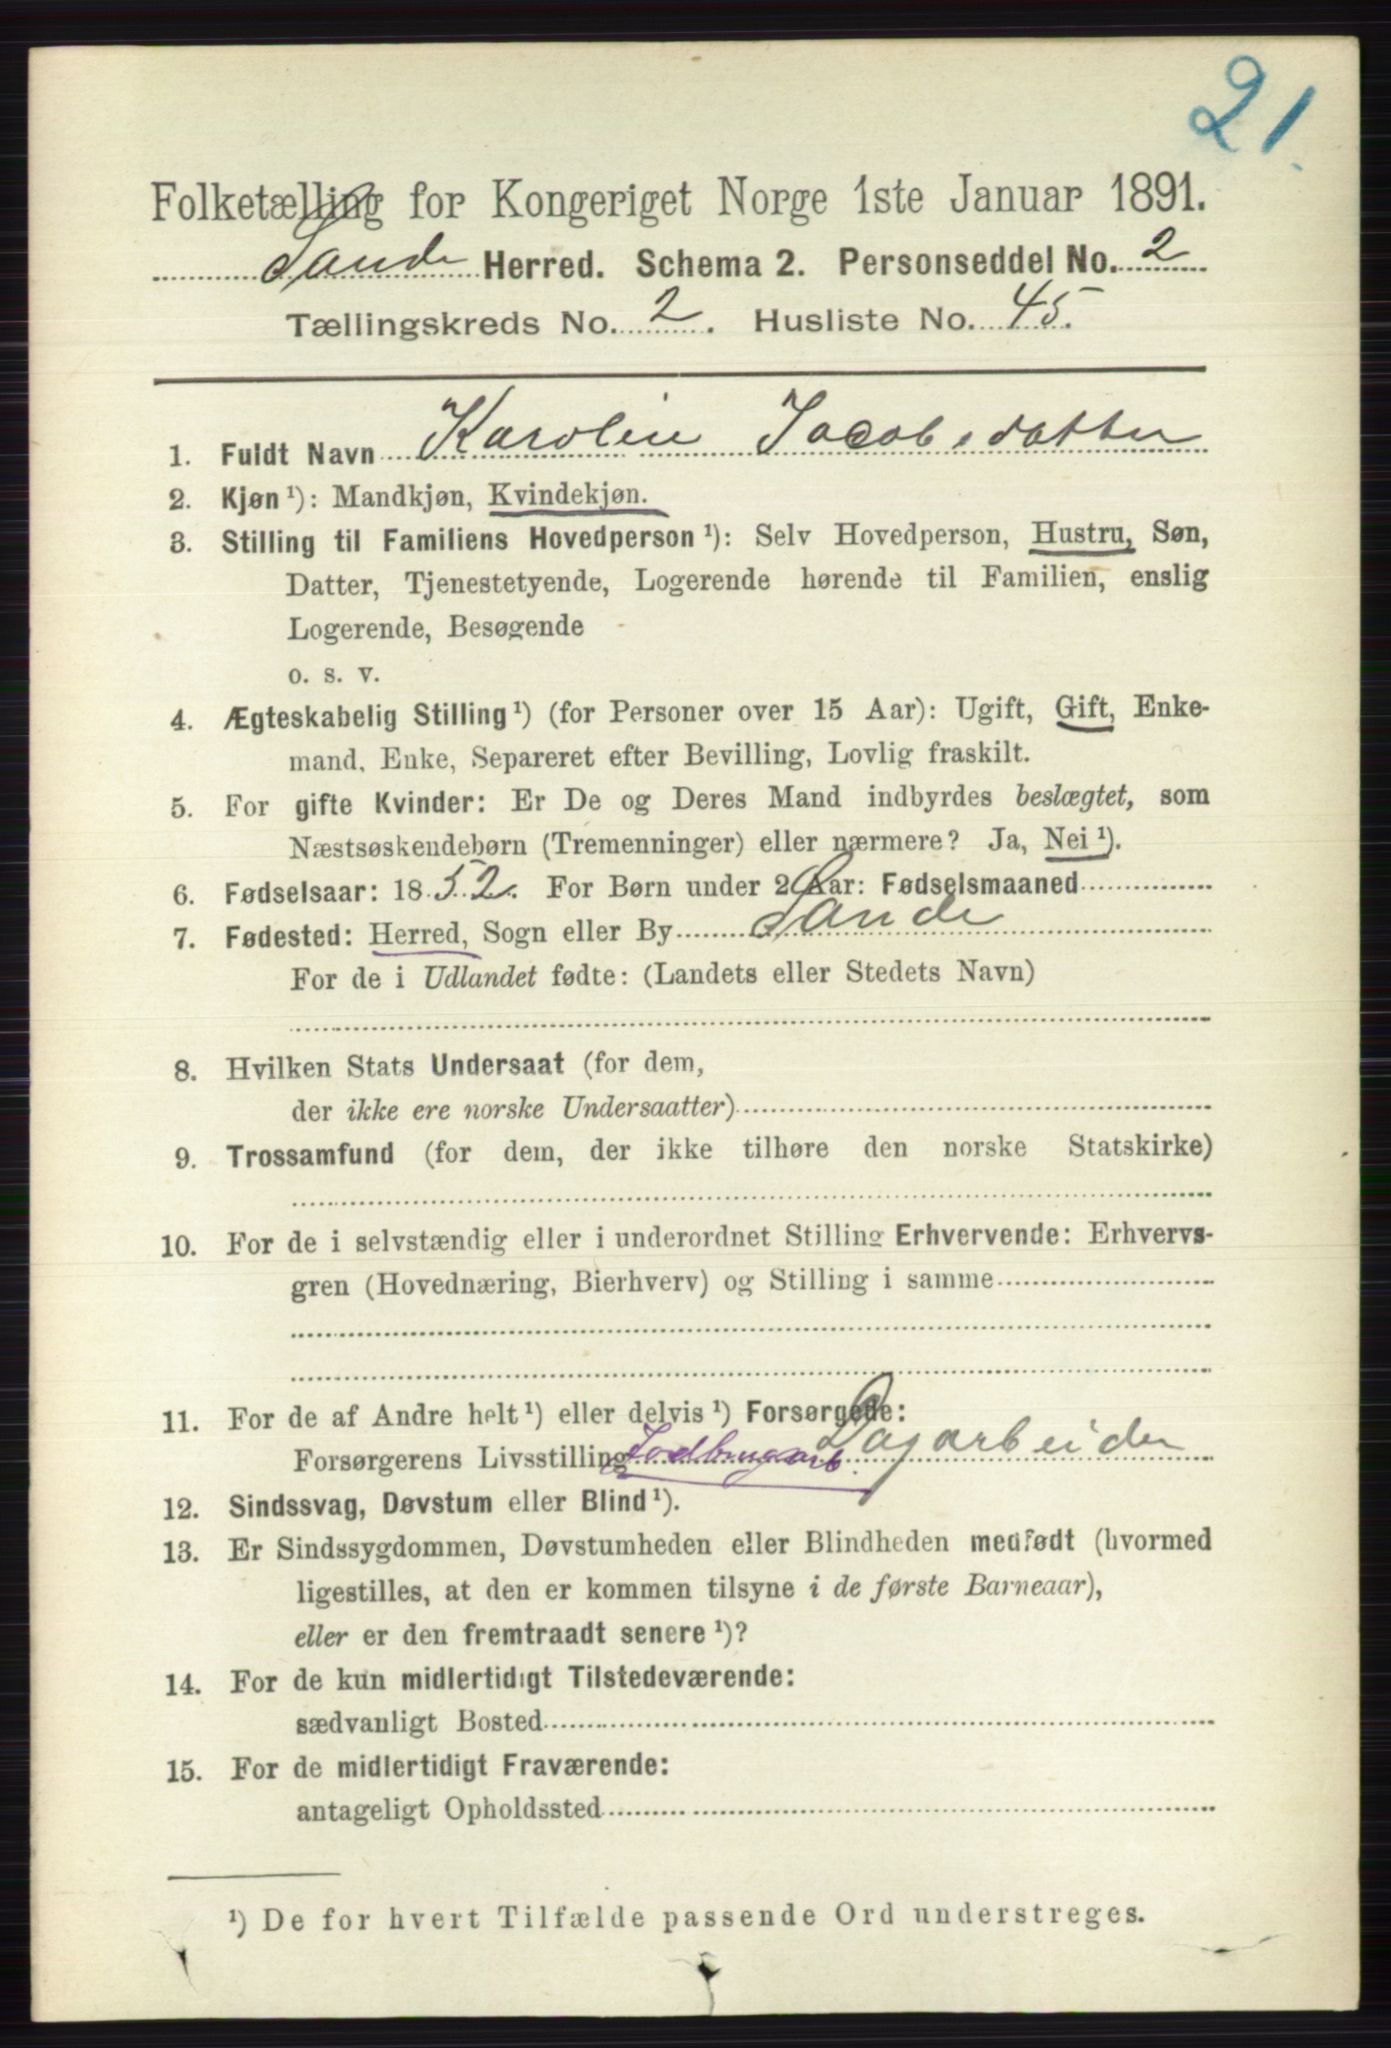 21.
Folketælling for Kongeriget Norge 1ste Januar 1891.
Sande Herred. Schema 2. Personseddel No. 2
Tællingskreds No. 2. Husliste No. 45.
1. Fuldt Navn Karolin Jacobsdatter
2. Kjøn ¹): Mandkjøn, Kvindekjøn.
3. Stilling til Familiens Hovedperson ¹): Selv Hovedperson, Hustru, Søn,
Datter, Tjenestetyende, Logerende hørende til Familien, enslig
Logerende, Besøgende
o. s. v.
4. Ægteskabelig Stilling ¹) (for Personer over 15 Aar): Ugift, Gift, Enke-
mand, Enke, Separeret efter Bevilling, Lovlig fraskilt.
5. For gifte Kvinder: Er De og Deres Mand indbyrdes beslægtet, som
Næstsøskendebørn (Tremenninger) eller nærmere? Ja, Nei ¹).
6. Fødselsaar: 1852. For Børn under 2 Aar: Fødselsmaaned
7. Fødested: Herred, Sogn eller By Sande
For de i Udlandet fødte: (Landets eller Stedets Navn)
8. Hvilken Stats Undersaat (for dem,
der ikke ere norske Undersaatter)
9. Trossamfund (for dem, der ikke tilhøre den norske Statskirke)
10. For de i selvstændig eller i underordnet Stilling Erhvervende: Erhvervs-
gren (Hovednæring, Bierhverv) og Stilling i samme
11. For de af Andre helt ¹) eller delvis ¹) Forsørgede:
Forsørgerens Livsstilling Jordbrugsarb. Dagarbeider
12. Sindssvag, Døvstum eller Blind ¹).
13. Er Sindssygdommen, Døvstumheden eller Blindheden medfødt (hvormed
ligestilles, at den er kommen tilsyne i de første Barneaar),
eller er den fremtraadt senere ¹)?
14. For de kun midlertidigt Tilstedeværende:
sædvanligt Bosted
15. For de midlertidigt Fraværende:
antageligt Opholdssted
¹) De for hvert Tilfælde passende Ord understreges.